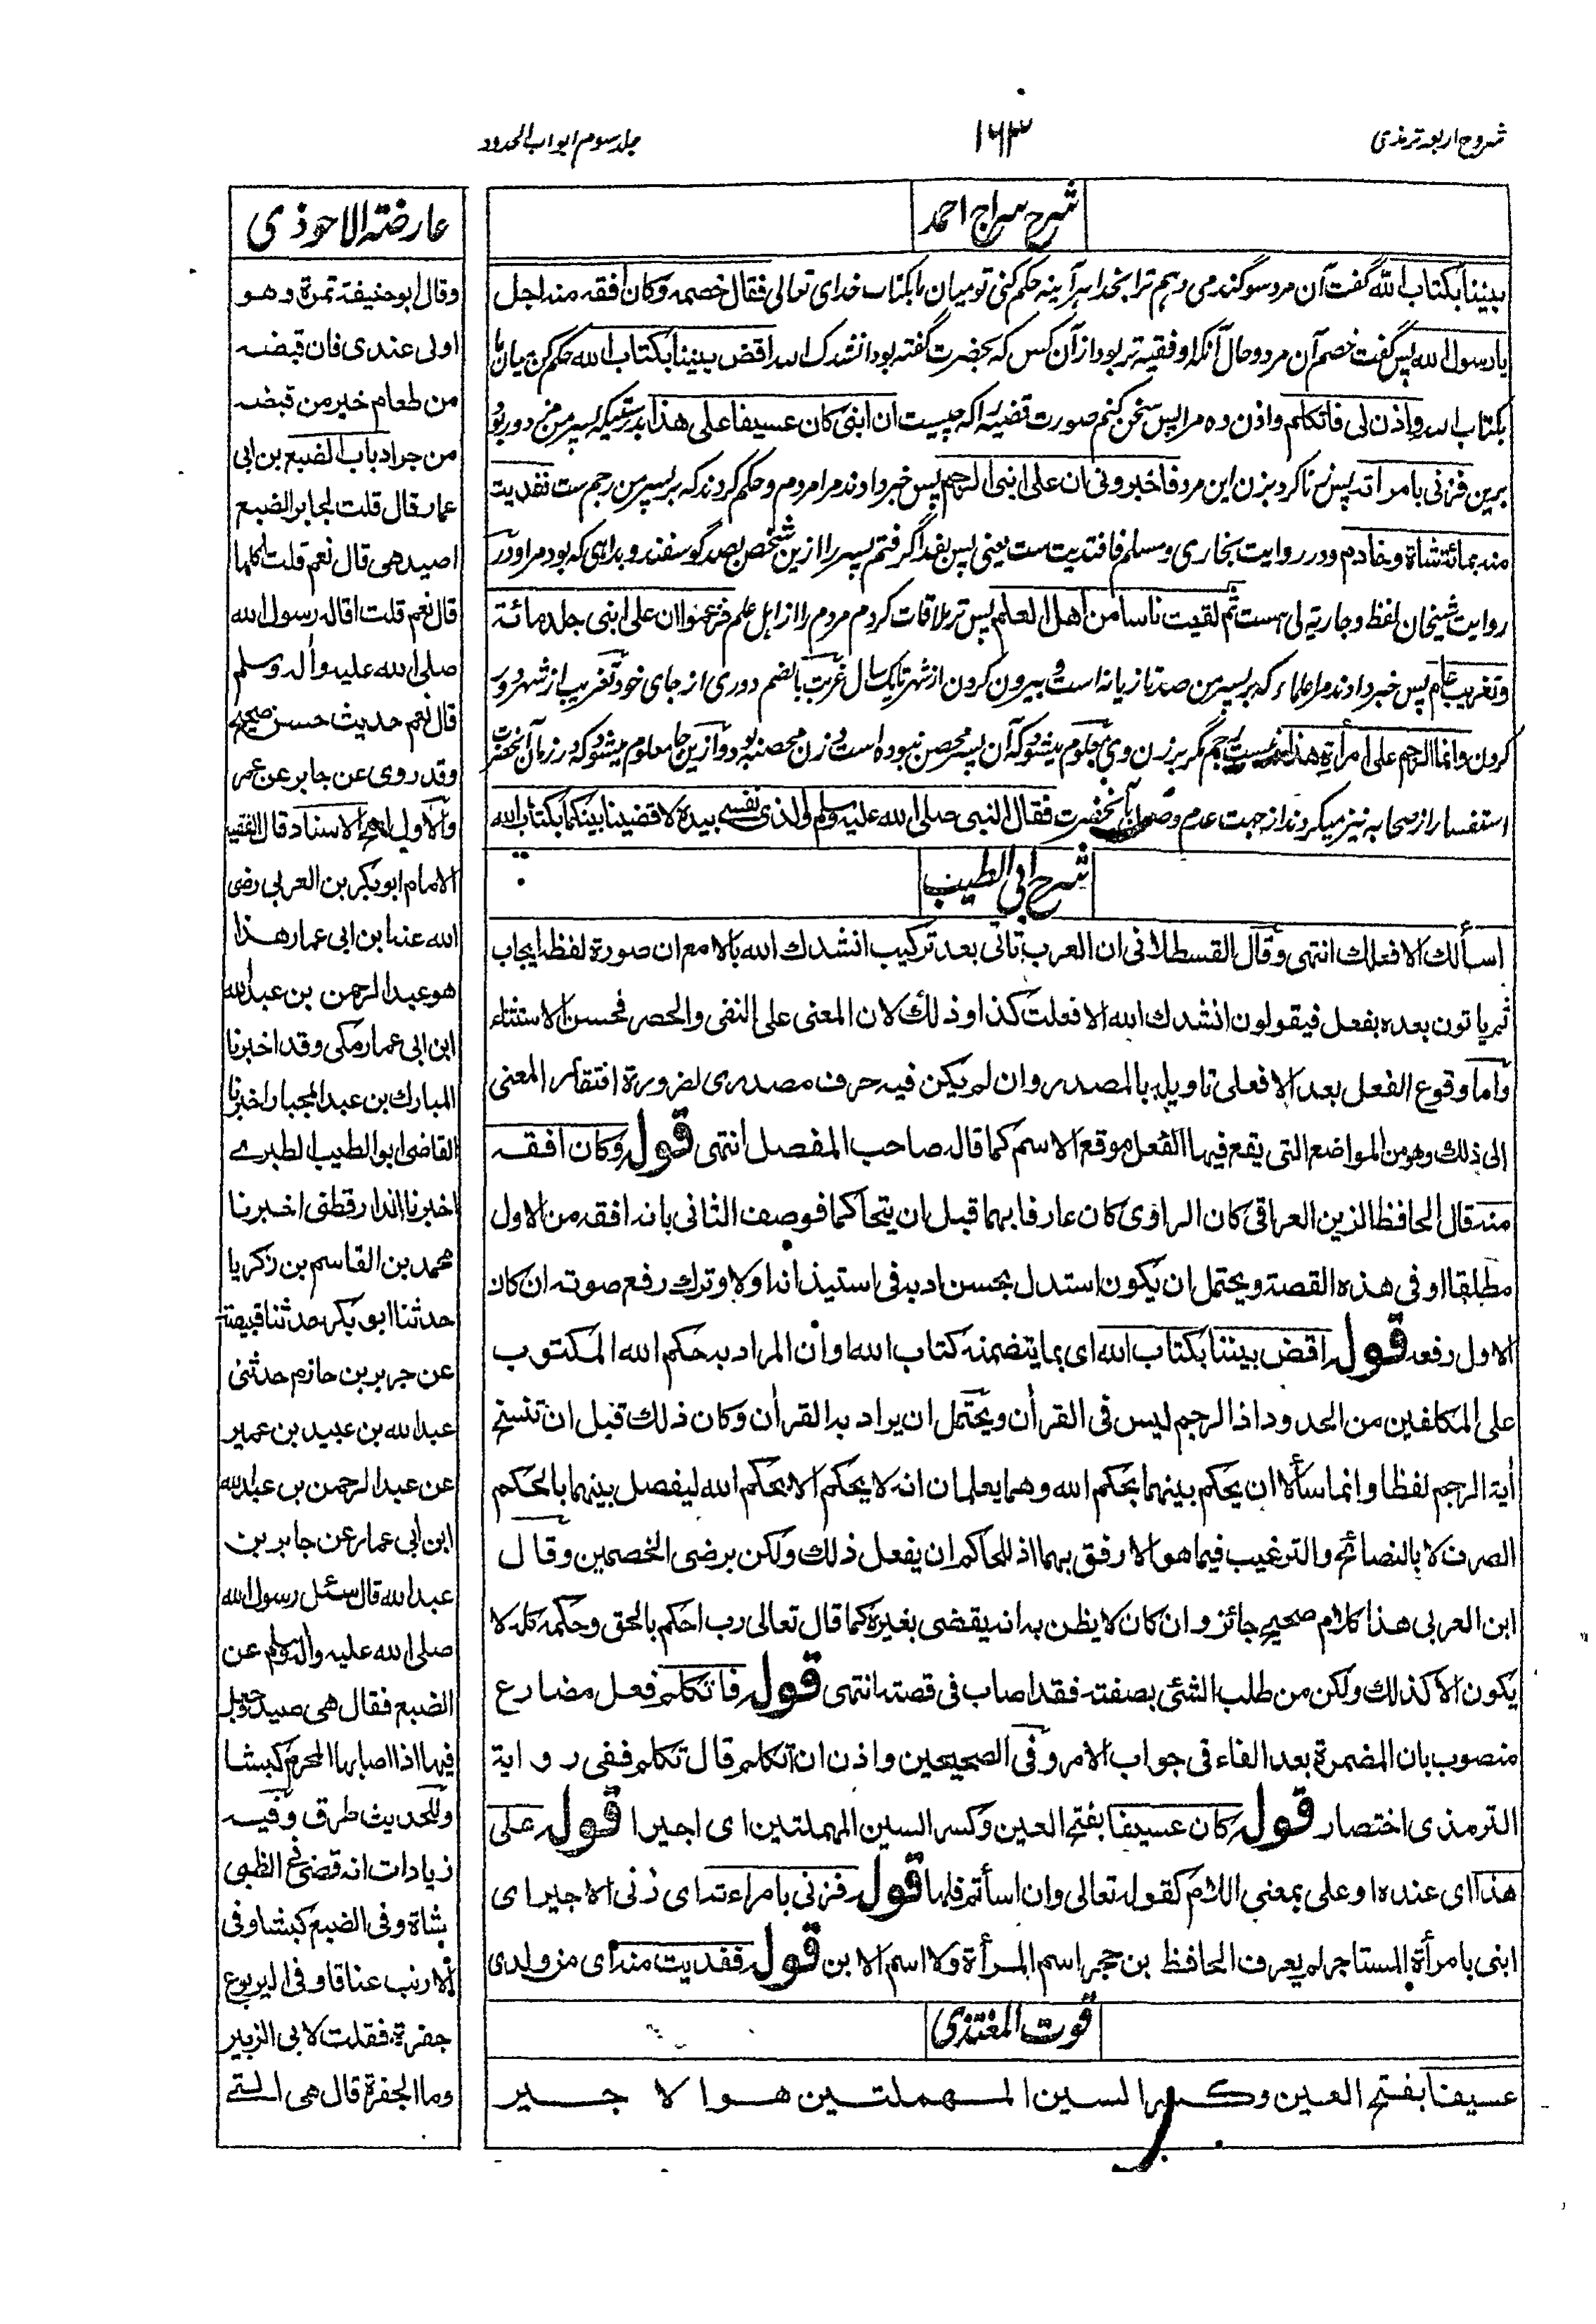 شروح اربعہ ترمذی
۱۶۳
جلد سوم ابواب الحدود
شرح سراج احمد
بیننا بکتاب اللہ گفت آن مرد سوگند می دہم ترا بخدا ہر آینہ حکم کنی تو میان ما بکتاب خدای تعالی فقال خصمہ وکان افقہ منہ اجل
یا رسول اللہ پس گفت خصم آن مرد و حال آنکہ او فقیہ تر بود از آن کس کہ بحضرت گفتہ بود انشدک اللہ اقض بیننا بکتاب اللہ حکم کن میان ما
بکتاب اللہ واذن لی فاتکلم واذن دہ مرا پس سخن کنم صورت قضیہ را کہ چیست ان ابنی کان عسیفا علی هذا بدرستیکہ پسر من مزدور بود
برین فزنی بامراتہ پس زنا کرد بزن این مرد فاخبرونی ان علی ابنی الرجم پس خبر دادند مرا مردم و حکم کردند کہ بر پسر من رجم ست ففدیت
منہ بمائة شاة وخادم ودر روایت بخاری ومسلم فافتدیت ست یعنی پس بفدا گرفتم پسر را ازین شخص بصد گوسفند و بداہی کہ بود مرا ودر
روایت شیخان لفظ وجاریة لی ہست ثم لقیت ناسا من اهل العلم پس تر ملاقات کردم مردم را از اہل علم فزعموا ان علی ابنی جلد مائة
وتغریب عام پس خبر دادند مرا علماء کہ بر پسر من صد تازیانہ است و بیرون کردن از شہر تا یک سال غربت بالضم دوری از جای خود تغریب از شہر دور
کردن وانما الرجم علی امرأة هذا ونیست رجم مگر بر زن وی معلوم میشود کہ آن پسر محصن نبودہ است و زن محصنہ بود و ازین جا معلوم میشود کہ در زمان آنحضرت
استفسار از صحابہ نیز میکردند از جہت عدم وصول بآنحضرت فقال النبی صلی اللہ علیہ وسلم والذی نفسی بیدہ لاقضینا بینکما بکتاب اللہ
شرح ابی الطیب
اسألك الا فعلك انتهى وقال القسطلانى ان العرب تاتى بعد تركيب انشدك الله بالا مع ان صورة لفظه ايجاب
ثم ياتون بعده بفعل فيقولون انشدك الله الا فعلت كذا وذلك لان المعنى على النفى والحصر فحسن الاستثناء
واما وقوع الفعل بعد الا فعلى تاويله بالمصدر وان لم يكن فيه حرف مصدرى لضرورة افتقار المعنى
الى ذلك وهو من المواضع التى يقع فيها الفعل موقع الاسم كما قاله صاحب المفصل انتهى قوله وكان افقه
منه قال الحافظ الزين العراقى كان الراوى كان عارفا بهما قبل ان يتحاكما فوصف الثانى بانه افقه من الاول
مطلقا او فى هذه القصة ويحتمل ان يكون استدل بحسن ادبه فى استيذانه اولا وترك رفع صوته ان كان
الاول رفعه قوله اقض بيننا بكتاب الله اى بما يتضمنه كتاب الله او ان المراد به حكم الله المكتوب
على المكلفين من الحدود اذ الرجم ليس فى القرأن ويحتمل ان يراد به القرأن وكان ذلك قبل ان تنسخ
أية الرجم لفظا وانما سألا ان يحكم بينهما بحكم الله وهما يعلمان انه لا يحكم الا بحكم الله ليفصل بينهما بالحكم
الصرف لا بالنصائح والترغيب فيما هو الارفق بهما اذ للحاكم ان يفعل ذلك ولكن برضى الخصمين وقال
ابن العربى هذا كلام صحيح جائز وان كان لا يظن به انه يقضى بغيره كما قال تعالى رب احكم بالحق وحكمه كله لا
يكون الا كذلك ولكن من طلب الشئ بصفته فقد اصاب فى قصته انتهى قوله فاتكلم فعل مضارع
منصوب بان المضمرة بعد الفاء فى جواب الامر وفى الصحيحين واذن ان اتكلم قال تكلم ففى رواية
الترمذى اختصار قوله كان عسيفا بفتح العين وكسر السين المهملتين اى اجيرا قوله على
هذا اى عنده او على بمعنى اللام كقوله تعالى وان اسأتم فلها قوله فزنى بامراءته اى زنى الاجير اى
ابنى بامرأة المستاجر لم يعرف الحافظ بن حجر اسم المرأة ولا اسم الابن قوله ففديت منه اى من ولدى
قوت المغتذی
عسيفا بفتح العين وكسر السين المهملتين هو الاجير
عارضة الاحوذی
وقال ابو حنيفة تمرة وهو
اولى عندى فان قبضه
من طعام خير من قبضه
من جراد باب الضبع بن ابى
عمار قال قلت لجابر الضبع
اصيد هى قال نعم قلت اكلها
قال نعم قلت اقاله رسول الله
صلى الله عليه وأله وسلم
قال نعم حديث حسن صحيح
وقد روى عن جابر عن عمر
والاول اصح الاسناد قال الفقيه
الامام ابو بكر بن العربى رضى
الله عنه ابن ابى عمار هذا
هو عبد الرحمن بن عبد الله
ابن ابى عمار مكى وقد اخبرنا
المبارك بن عبد الجبار اخبرنا
القاضى ابو الطيب الطبرے
اخبرنا الدارقطنى اخبرنا
محمد بن القاسم بن زكريا
حدثنا ابو بكر حدثنا قبيصة
عن جرير بن حازم حدثنى
عبد الله بن عبيد بن عمير
عن عبد الرحمن بن عبد الله
ابن ابى عمار عن جابر بن
عبد الله قال سئل رسول الله
صلى الله عليه وأله وسلم عن
الضبع فقال هى صيد وجعل
فيها اذا اصابها المحرم كبشا
وللحديث طرق وفيه
زيادات انه قضى فى الظبى
بشاة وفى الضبع كبشا وفى
الارنب عناقا وفى اليربوع
جفرة فقلت لابى الزبير
وما الجفرة قال هى التے